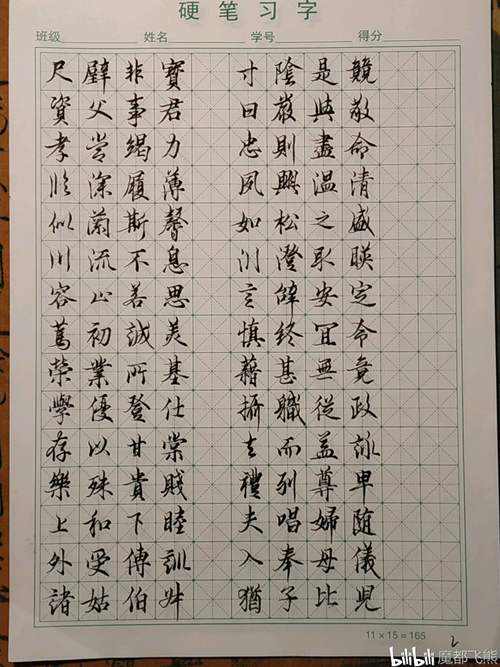 硬笔习字
班级 姓名 学号 得分
尺璧非寶 寸陰是競
資父事君 曰嚴與敬
孝當竭力 忠則盡命
臨深履薄 夙興温清
似蘭斯馨 如松之盛
川流不息 川澄取暎
容止若思 言辝安定
篤初誠美 慎終宜令
榮業所基 藉甚無竟
學優登仕 攝職從政
存以甘棠 去而益詠
樂殊貴賤 禮別尊卑
上和下睦 夫唱婦随
外受傅訓 入奉母儀
諸姑伯叔 猶子比兒
11×15=165
2
bilibili 魔都飞熊